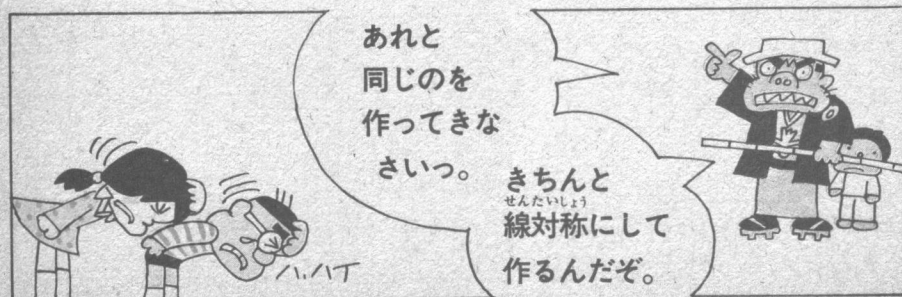 あれと
同じのを
作ってきな
さいっ。
きちんと
せんたいしょう
線対称にして
作るんだぞ。
ハ、ハイ